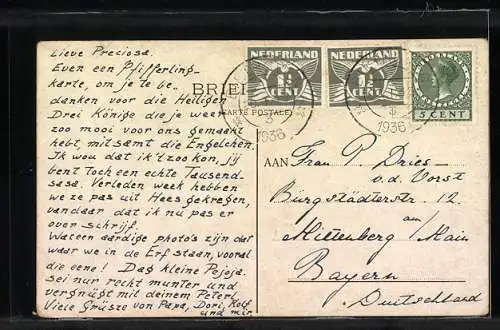 Lieve Preciosa.
Even een Pfifferling-
karte, om je te be-
danken voor die Heiligen
Drei Könige die je weer
zoo mooi voor ons gemaakt
hebt, mitsamt die Engelchen.
Ik wou dat ik 't zoo kon. Jij
bent toch een echte Tausend-
sasa. Verleden week hebben
we ze pas uit Hees gekregen,
vandaar dat ik nu pas er
over schrijf.
Wateen aardige photo's zijn dat
waar we in de Erf staan, vooral
die eene! Dag kleine Pejoja.
sei nur recht munter und
vergnügt mit deinem Peterl
Viele Grüsze von Papa, Dori, Rolf
und mir
BRIE
KARTE POSTALE
NEDERLAND
1½
CENT
NEDERLAND
1½
CENT
5 CENT
1936
1936
AAN
Frau P. Dries-
v.d. Vorst
Bürgstädterstr. 12.
Miltenberg am/Main
Bayern
Duitschland